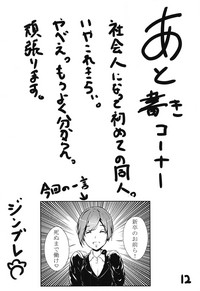 あと書きコーナー
社会人になって初めての同人。
いやこれきちぃ。
やべぇ。もうよく分からん。
頑張ります。
今回の一言
新卒のお前ら?
死ぬまで働けな
ジンブレ
12